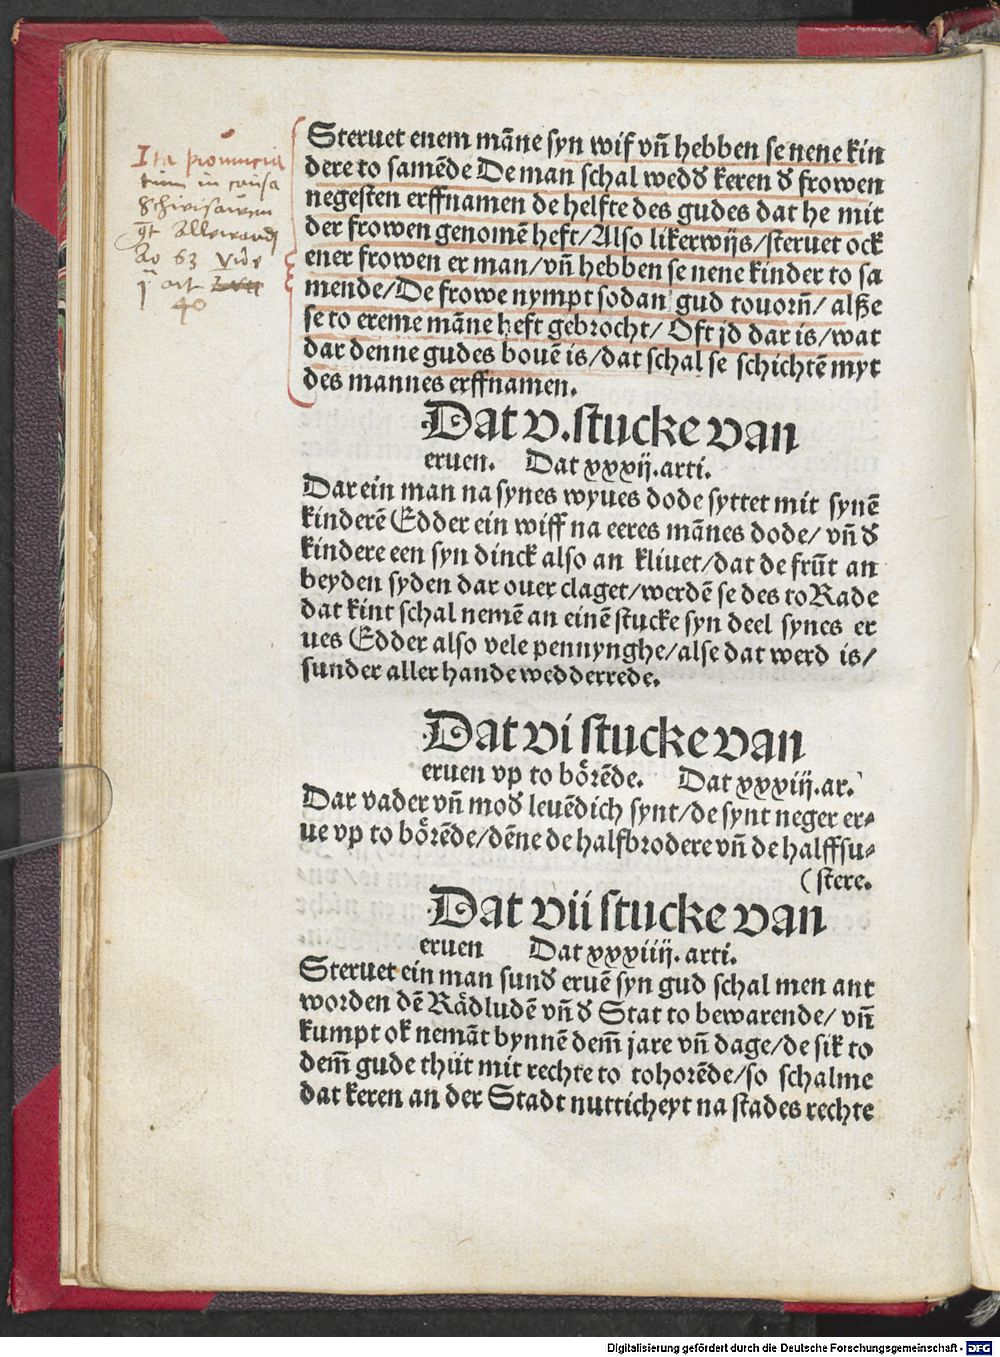 Steruet enem mãne syn wif vñ hebben se nene kin
dere to samẽde De man schal wedđ keren đ frowen
negesten erffnamen de helfte des gudes dat he mit
der frowen genomẽ heft/Also likerwijs/steruet ock
ener frowen er man/vñ hebben se nene kinder to sa
mende/De frowe nympt sodan gud touorñ/alße
se to ereme mãne heft gebrocht/Oft jd dar is/wat
dar denne gudes bouẽ is/dat schal se schichtẽ myt
des mannes erffnamen.
Ita
in causa
Ao 63 Vide
art
40
Dat v.stucke van
eruen. Dat xxxij.arti.
Dar ein man na synes wyues dode syttet mit synẽ
kinderẽ Edder ein wiff na eeres mãnes dode/vñ đ
kindere een syn dinck also an kliuet/dat de frũt an
beyden syden dar ouer claget/werdẽ se des to Rade
dat kint schal nemẽ an einẽ stucke syn deel synes er
ues Edder also vele pennynghe/alse dat werd is/
sunder aller hande wedderrede.
Dat vi stucke van
eruen vp to boͤrẽde. Dat xxxiij.ar.
Dar vader vñ mođ leuẽdich synt/de synt neger er⸗
ue vp to boͤrẽde/dẽne de halfbrodere vñ de halffsu⸗
(stere.
Dat vii stucke van
eruen Dat xxxiiij.arti.
Steruet ein man sunđ eruẽ syn gud schal men ant
worden dẽ Raͤdludẽ vñ đ Stat to bewarende/vñ
kumpt ok nemãt bynnẽ dem̃ jare vñ dage/de sik to
dem̃ gude thüt mit rechte to tohorẽde/so schalme
dat keren an der Stadt nutticheyt na stades rechte
Digitalisierung gefördert durch die Deutsche Forschungsgemeinschaft - DFG